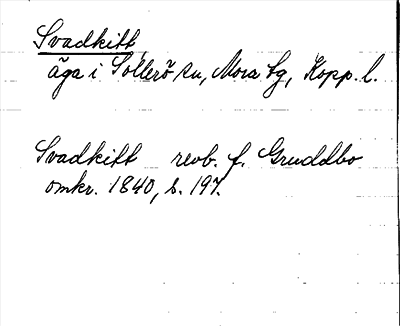 Svadkitt,
äga i Sollerö sn, Mora tg, Kopp. l.
Svadkitt revb. f. Gruddbo
omkr. 1840, s. 197.